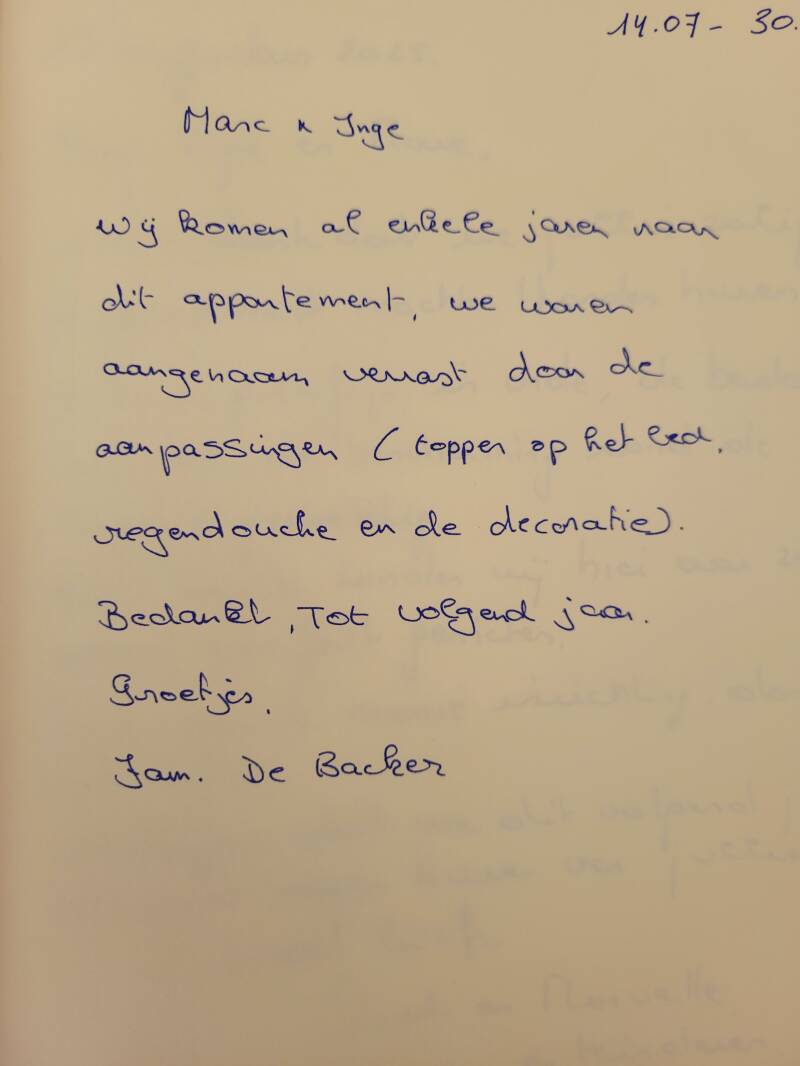 14.07 - 30.
Marc & Inge
Wij komen al enkele jaren naar
dit appartement, we waren
aangenaam verrast door de
aanpassingen (topper op het bed,
regendouche en de decoratie).
Bedankt, Tot volgend jaar.
Groetjes,
Fam. De Backer